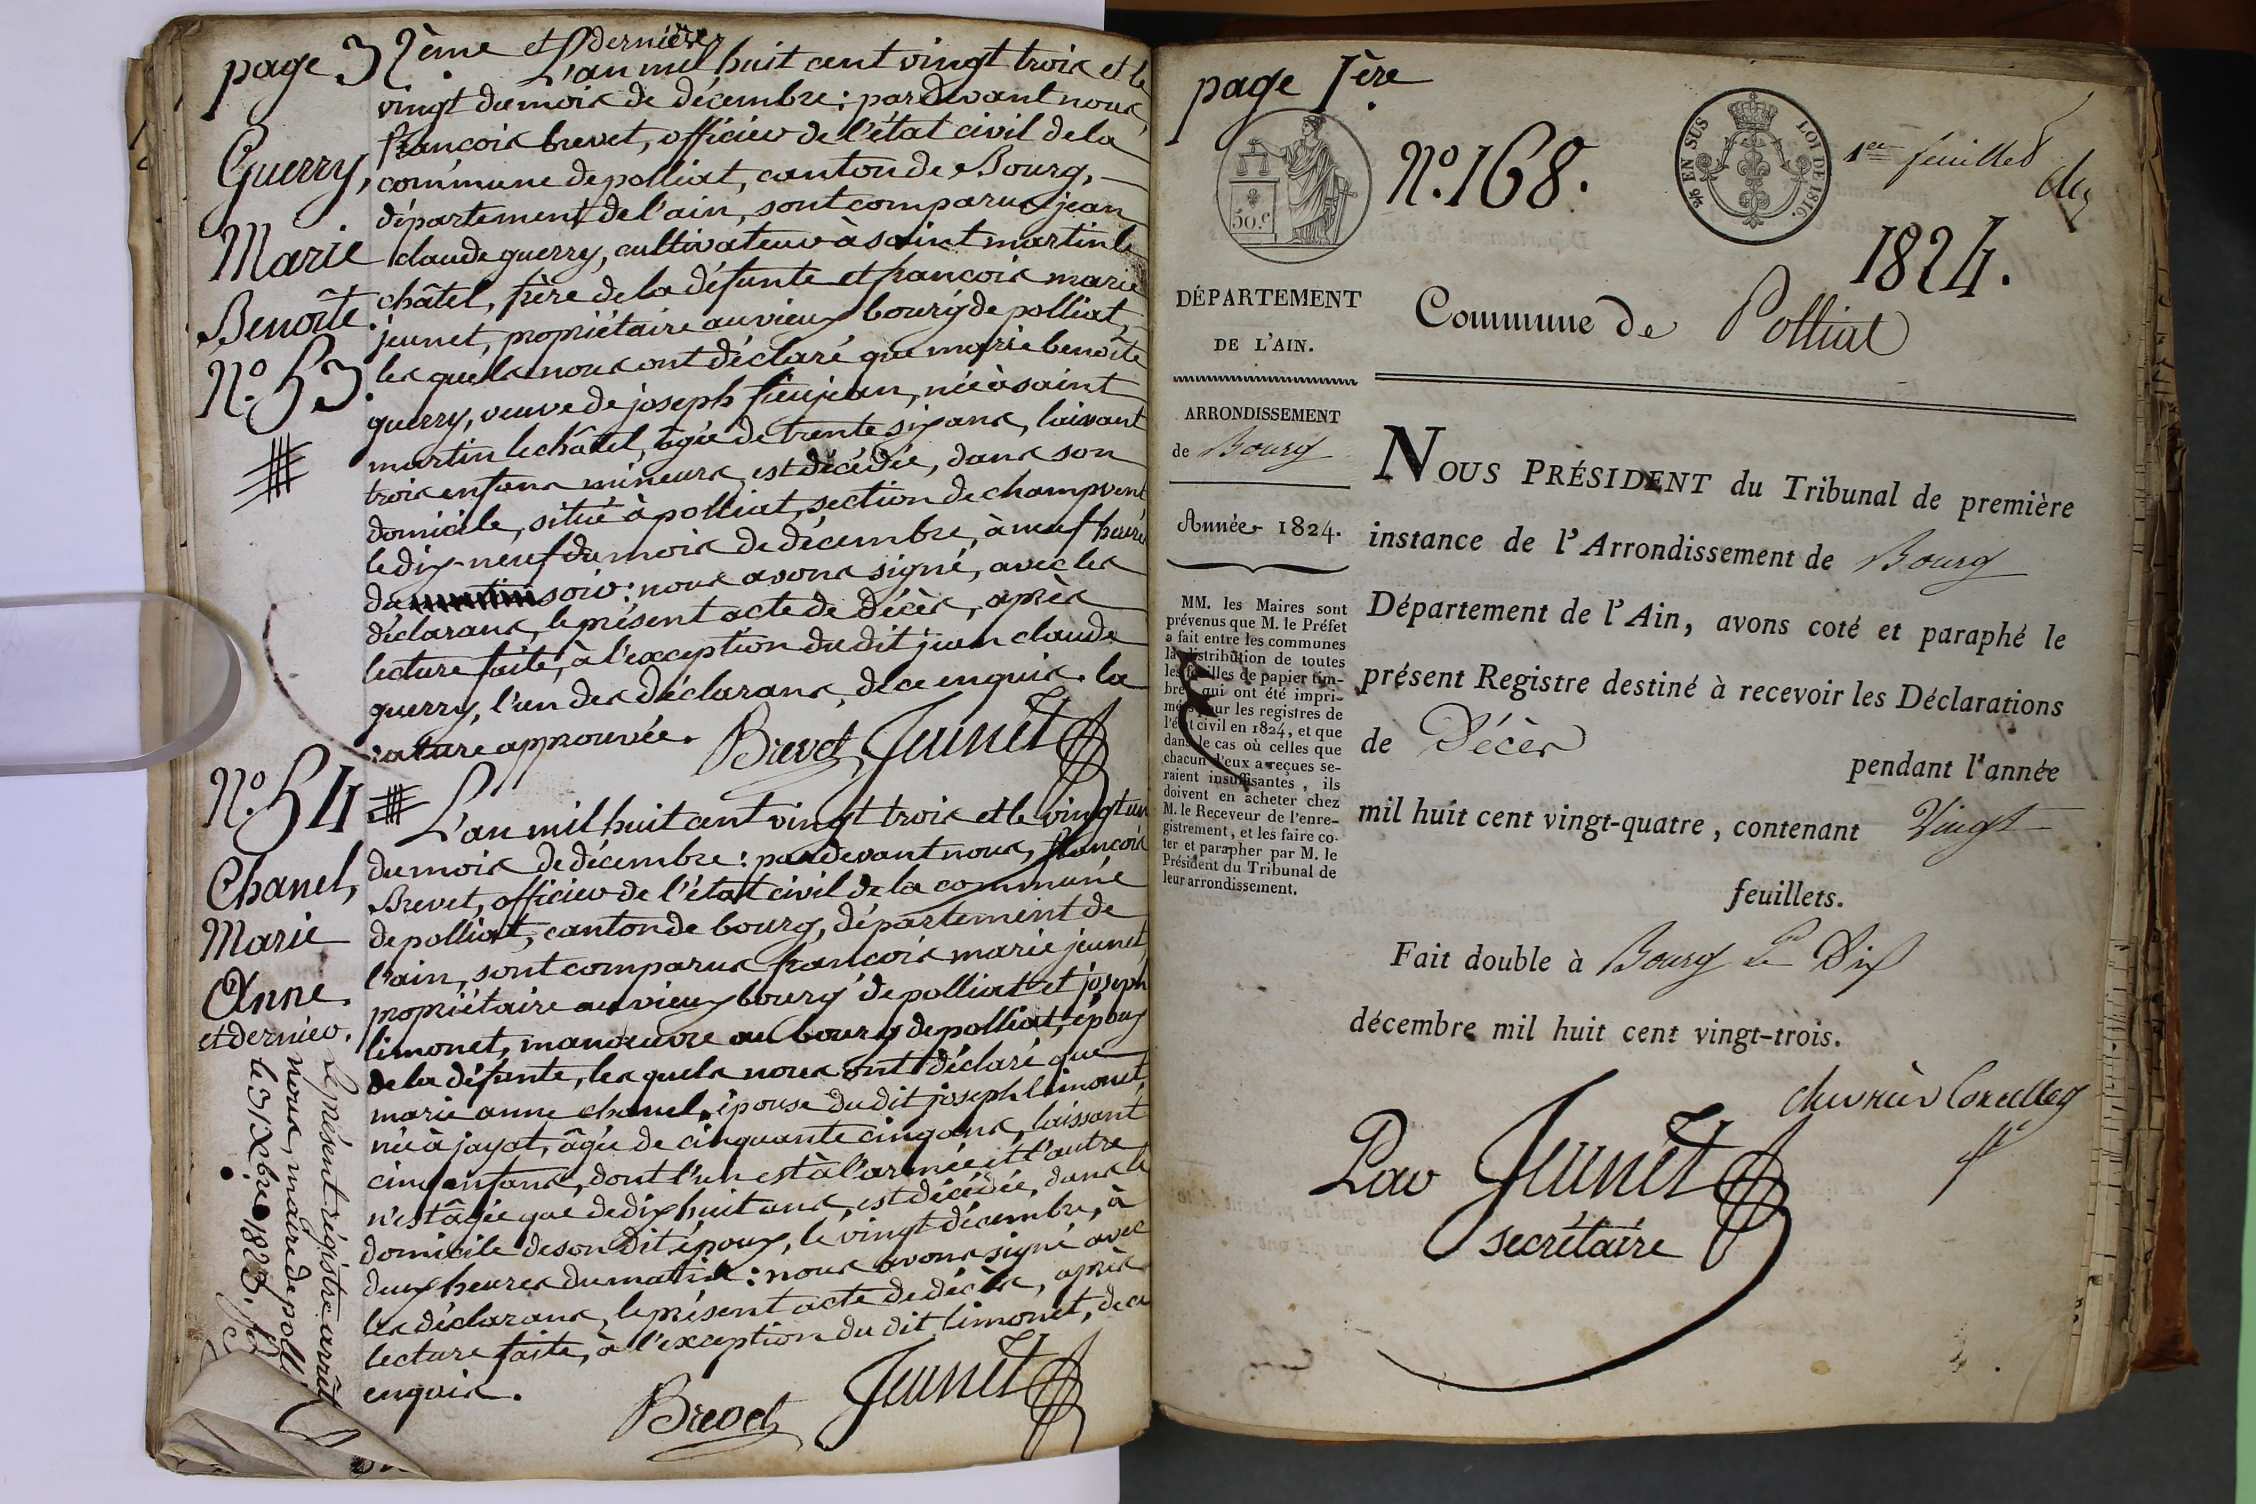 page 32ème et dernière
L'an mil huit cent vingt trois et le
vingt du mois de décembre : pardevant nous,
françois brevet, officier de l'état civil de la
commune de polliat, canton de Bourg,
département de l'ain, sont comparus jean
claude guerry, cultivateur à saint martin le
châtel, frère de la défunte et françois marie
jeunet, propriétaire au vieux bourg de polliat,
les quels nous ont déclaré que marie benoîte
guerry, veuve de joseph fieujean, née à saint
martin le châtel, âgée de trente six ans, laissant
trois enfans mineurs, est décédée, dans son
domicile, situé à polliat, section de champvent
le dix-neuf du mois de décembre, à neuf heures
du matin soir : nous avons signé, avec les
déclarans, le présent acte de décès, après
lecture faite, à l'exception du dit jean claude
guerry, l'un des déclarans, de ce enquis. la
rature approuvée. Brevet Jeunet
Guerry,
Marie
Benoîte.
N.o 53.
N.o 54
Chanel,
Marie
Anne.
et dernier.
L'an mil huit cent vingt trois et le vingt un
du mois de décembre : pardevant nous, françois
Brevet, officier de l'état civil de la commune
de polliat, canton de bourg, département de
l'ain, sont comparus françois marie jeunet,
propriétaire au vieux bourg de polliat et joseph
limonet, manoeuvre au bourg de polliat, époux
de la défunte, les quels nous ont déclaré que
marie anne chanel, épouse du dit joseph limonet,
née à jayat, âgée de cinquante cinq ans, laissant
cinq enfans, dont l'un est à l'armée et l'autre
n'est âgée que de dix huit ans, est décédée, dans le
domicile de son dit époux, le vingt décembre, à
deux heures du matin : nous avons signé avec
les déclarans, le présent acte de décès, après
lecture faite, à l'exception du dit limonet, de ce
enquis.
Brevet Jeunet
Le présent régistre arrêté
nous, maire de polli
le 31 Xbre 1823.
page 1ère
50.c
N.o 168.
EN SUS LOI DE 1816.
1er feuillet
1824.
DÉPARTEMENT
DE L'AIN.
ARRONDISSEMENT
de Bourg
Année 1824.
MM. les Maires sont
prévenus que M. le Préfet
a fait entre les communes
la distribution de toutes
les feuilles de papier tim-
bré qui ont été impri-
més pour les registres de
l'état civil en 1824, et que
dans le cas où celles que
chacun d'eux a reçues se-
raient insuffisantes, ils
doivent en acheter chez
M. le Receveur de l'enre-
gistrement, et les faire co-
ter et parapher par M. le
Président du Tribunal de
leur arrondissement.
Commune de Polliat
NOUS PRÉSIDENT du Tribunal de première
instance de l'Arrondissement de Bourg
Département de l'Ain, avons coté et paraphé le
présent Registre destiné à recevoir les Déclarations
de Décès pendant l'année
mil huit cent vingt-quatre, contenant Vingt
feuillets.
Fait double à Bourg Le Dix
décembre mil huit cent vingt-trois.
Par Jeunet
secrétaire